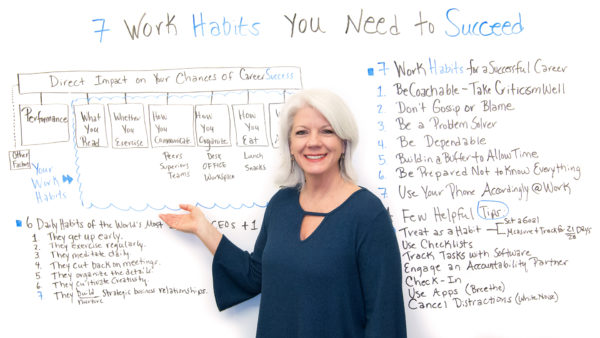 7 Work Habits You Need to Succeed
Direct Impact on Your Chances of Career Success
Performance
Other
Factors
Your
Work
Habits
What
You
Read
Whether
You
Exercise
How
You
Communicate
Peers
Superiors
Teams
How
You
Organize
Desk
OFFICE
Workspace
How
You
Eat
Lunch
Snacks
6 Daily Habits of the World's Most CEOs + 1
1. They get up early.
2. They exercise regularly.
3. They meditate daily
4. They cut back on meetings.
5. They organize the details
6 They cultivate creativity
7 They build strategic business relationships.
nurture
7 Work Habits for a Successful Career
1. Be Coachable - Take Criticism Well
2. Don't Gossip or Blame
3. Be a Problem Solver
4. Be Dependable
5. Build in a Buffer to Allow Time
6. Be Prepared Not to Know Everything
7 Use Your Phone Accordingly @ Work
Few Helpful Tips
Set a Goal
Treat as a Habit
Measure + Track 21 Days
Use Checklists
Track Tasks with Software
Engage an Accountability Partner
Check-In
Use Apps (Breethe)
Cancel Distractions (White Noise)